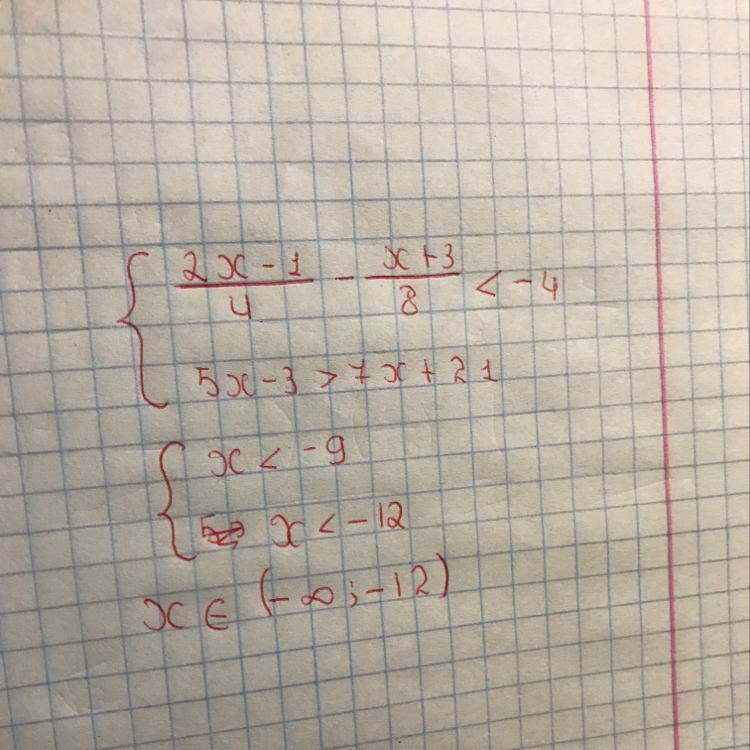 { (2x-1)/4 - (x+3)/8 < -4
5x-3 > 7x+21
{ x < -9
x < -12
x ∈ (-∞; -12)